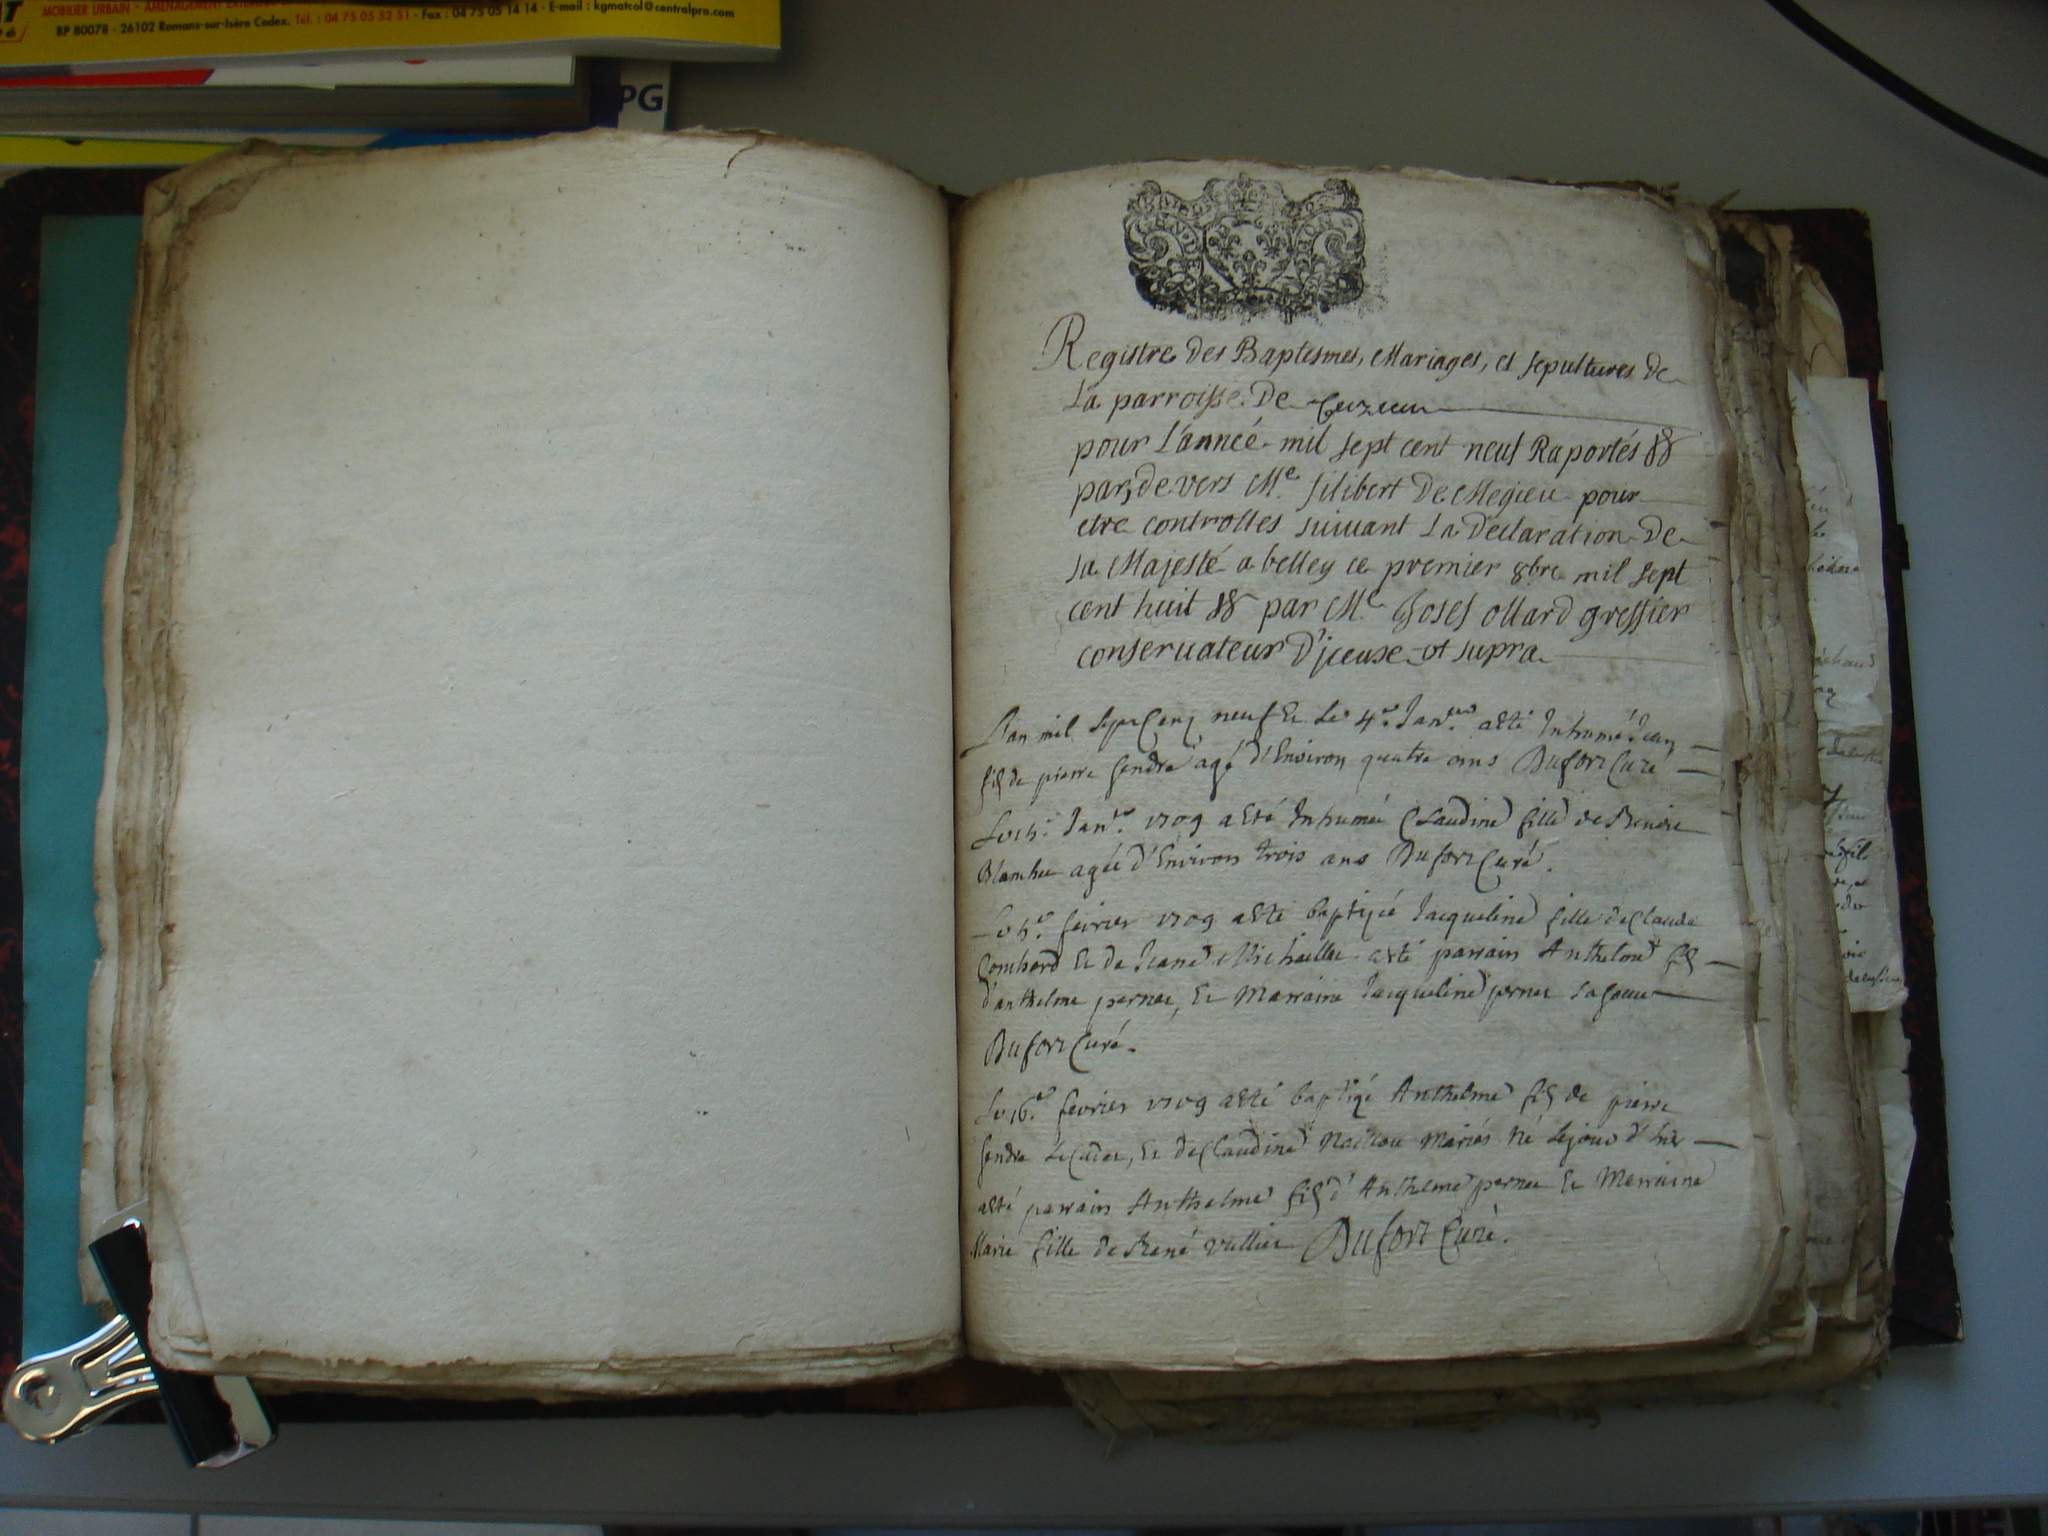 MOBILIER URBAIN - AMÉNAGEMENT
BP 80078 - 26102 Romans-sur-Isère Cedex. Tél. : 04 75 05 52 51 - Fax : 04 75 05 14 14 - E-mail : kgmatcol@centralpro.com
PG
Registre des Baptesmes, Mariages, et sepultures de
La parroisse De Cuzieu
pour L'année mil sept cent neuf Raportés
par, de vers Me filibert De Megieu pour
etre controlles suivant La Declaration De
sa Majesté a belley ce premier 8bre mil sept
cent huit par Me Josef ollard greffier
conservateur D'iceuxe ut supra
L'an mil sept Cent neuf Et Le 4e Janer a esté Inhumé Jean
fils de pierre fendre agé d'Environ quatre ans Dufort Curé
Janer 1709 a Esté Inhumée Claudine fille de
agée d'Environ trois ans Dufort Curé.
Le fevrier 1709 a esté baptizée Jacqueline fille de Claude
Gombard Et de Jeane a esté parrain Anthelme fils
d'anthelme pernet, Et Marraine Jacqueline pernet sa soeur
Dufort Curé.
Le 16e fevrier 1709 a esté baptizé Anthelme fils de pierre
fendre Le Cadet, Et de Claudine mariés né le jour d'hier
a esté parrain Anthelme fils d'Anthelme pernet Et Marraine
Marie fille de René vullier Dufort Curé.